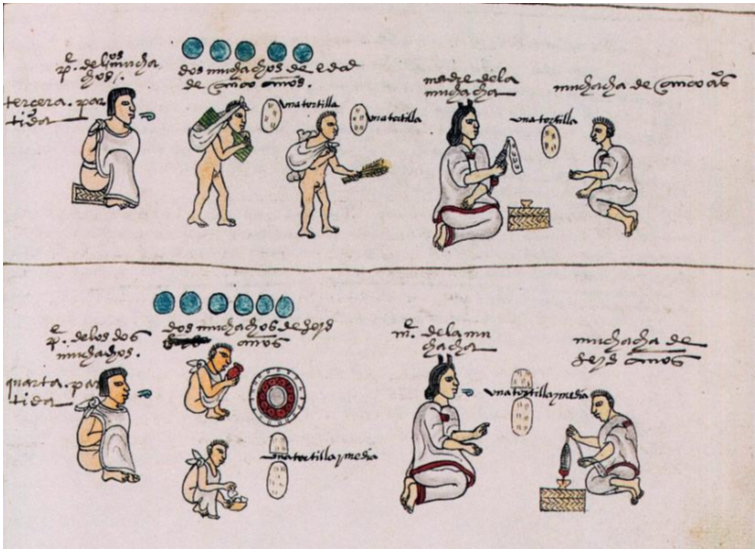 pe. de los mucha
chos.
tercera. par
tida
dos muchachos de edad
de cinco años.
una tortilla
una tortilla
madre de la
muchacha
una tortilla
muchacha de cinco años
pe. de los dos
muchachos.
quarta. par
tida
dos muchachos de seis
años
una tortilla y media
me. de la mu
chacha
una tortilla y media
muchacha de
seis años